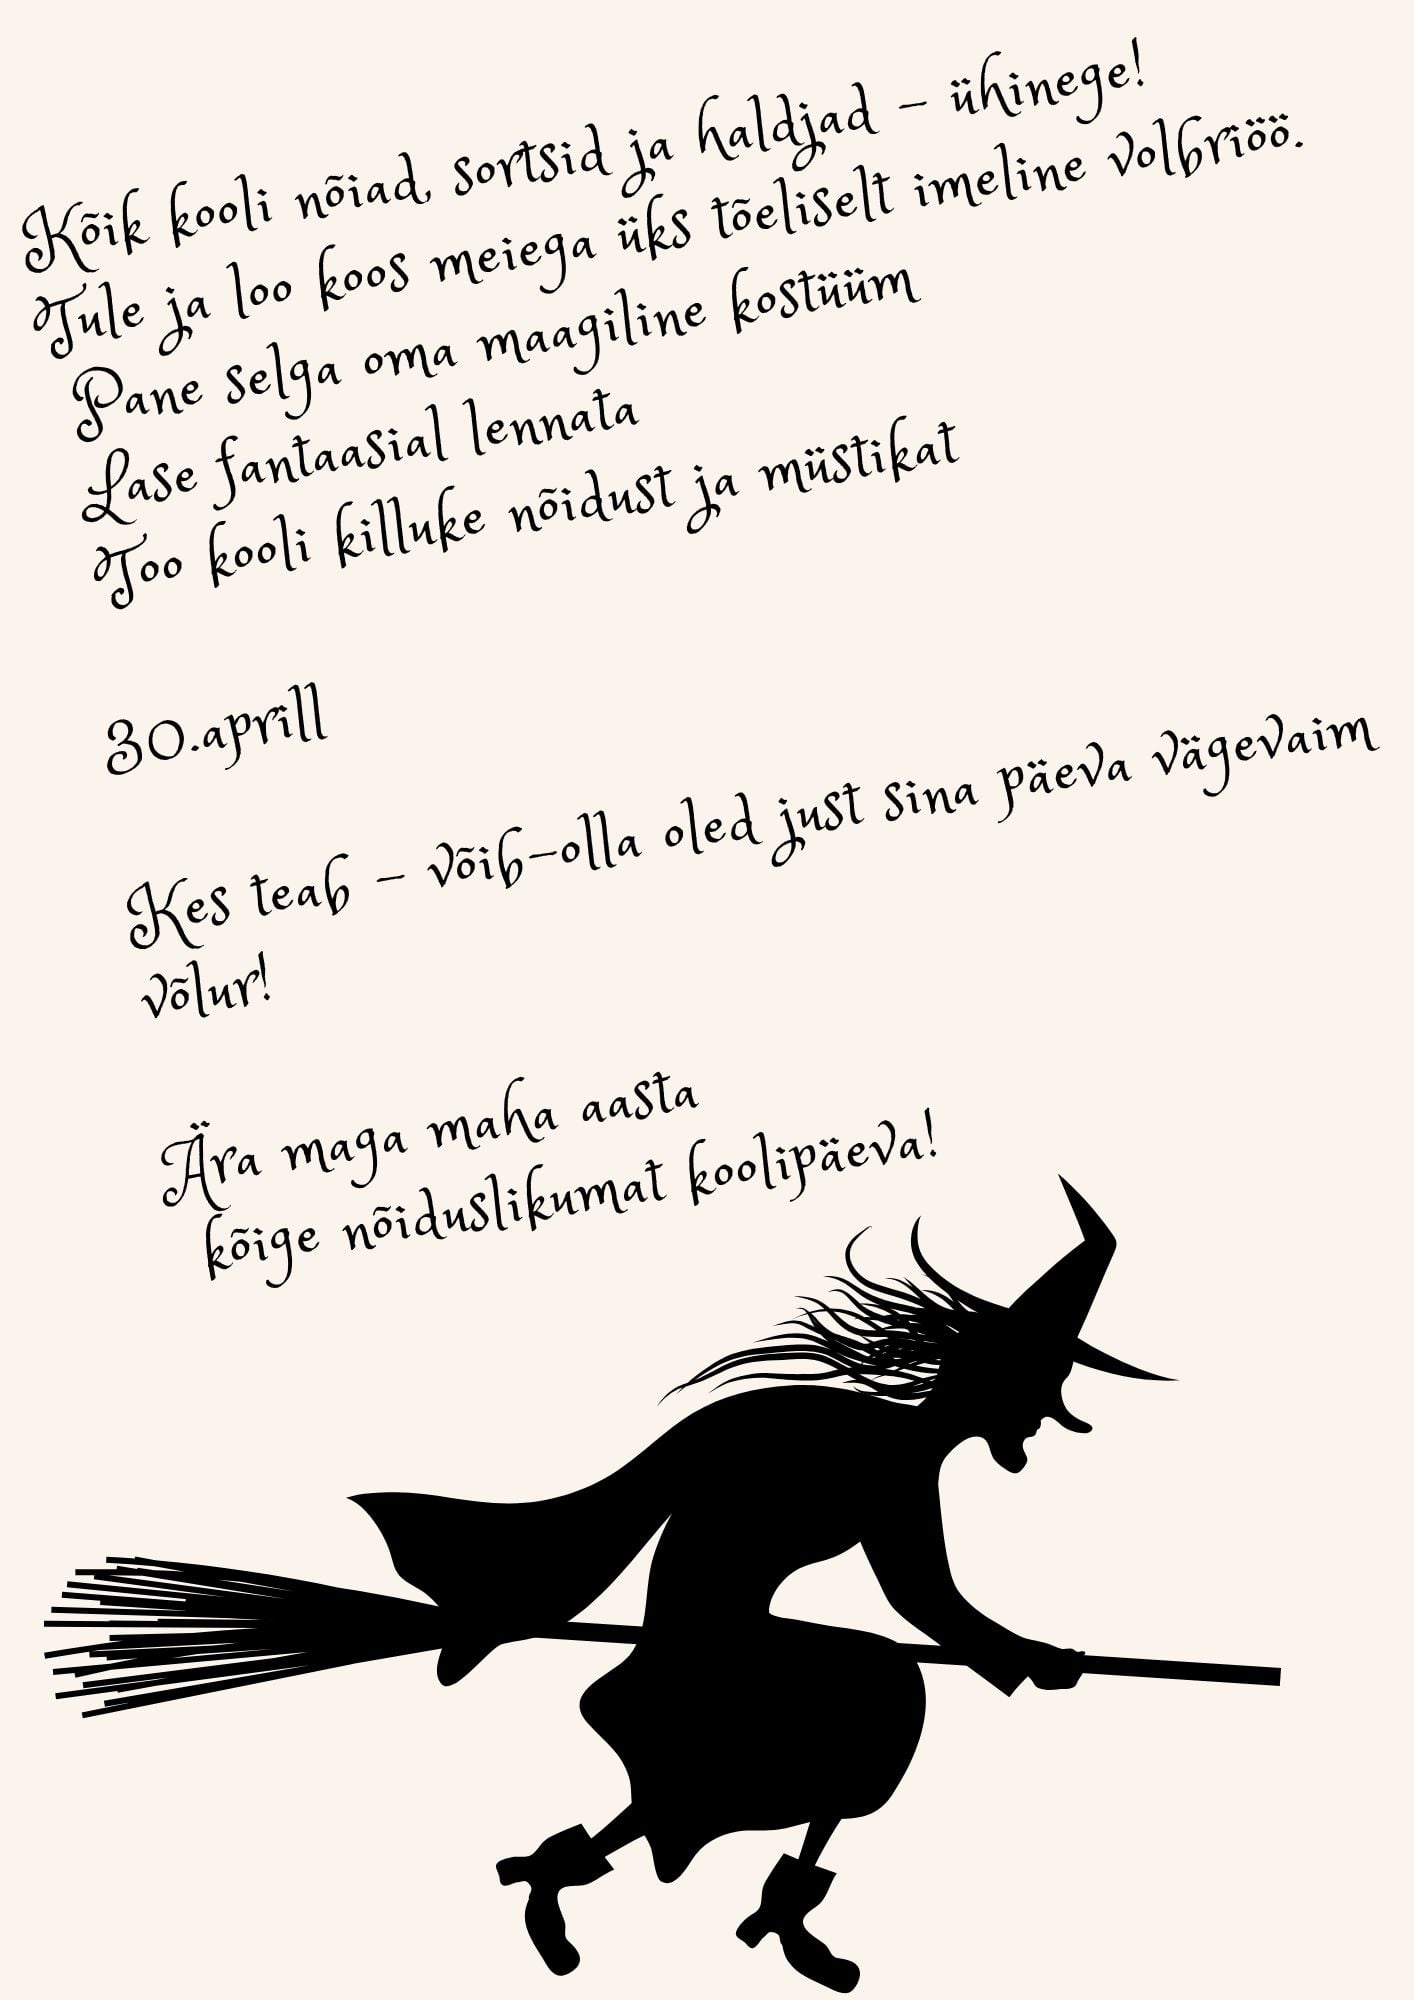 Kõik kooli nõiad, sortsid ja haldjad – ühinege!
Tule ja loo koos meiega üks tõeliselt imeline volbriöö.
Pane selga oma maagiline kostüüm
Lase fantaasial lennata
Too kooli killuke nõidust ja müstikat
30.aprill
Kes teab – võib-olla oled just sina päeva vägevaim
võlur!
Ära maga maha aasta
kõige nõiduslikumat koolipäeva!